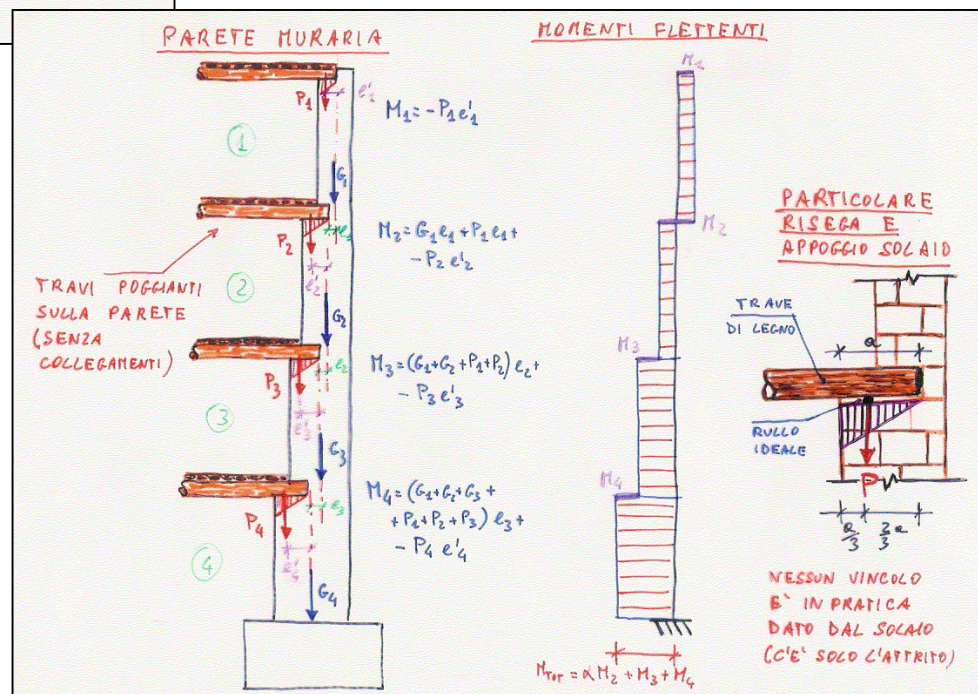 PARETE MURARIA
P1
e'1
M1 = -P1 e'1
1
G1
P2
e1
M2 = G1 e1 + P1 e1 +
- P2 e'2
e'2
2
TRAVI POGGIANTI
SULLA PARETE
(SENZA
COLLEGAMENTI)
G2
P3
e2
M3 = (G1+G2+P1+P2) e2 +
- P3 e'3
3
e'3
G3
P4
e3
M4 = (G1+G2+G3+
+ P1+P2+P3) e3 +
- P4 e'4
4
e'4
G4
MOMENTI FLETTENTI
M1
M2
M3
M4
MTOT = αM2 + M3 + M4
PARTICOLARE
RISEGA E
APPOGGIO SOLAIO
TRAVE
DI LEGNO
a
RULLO
IDEALE
P
a/3
2/3 a
NESSUN VINCOLO
E' IN PRATICA
DATO DAL SOLAIO
(C'E' SOLO L'ATTRITO)